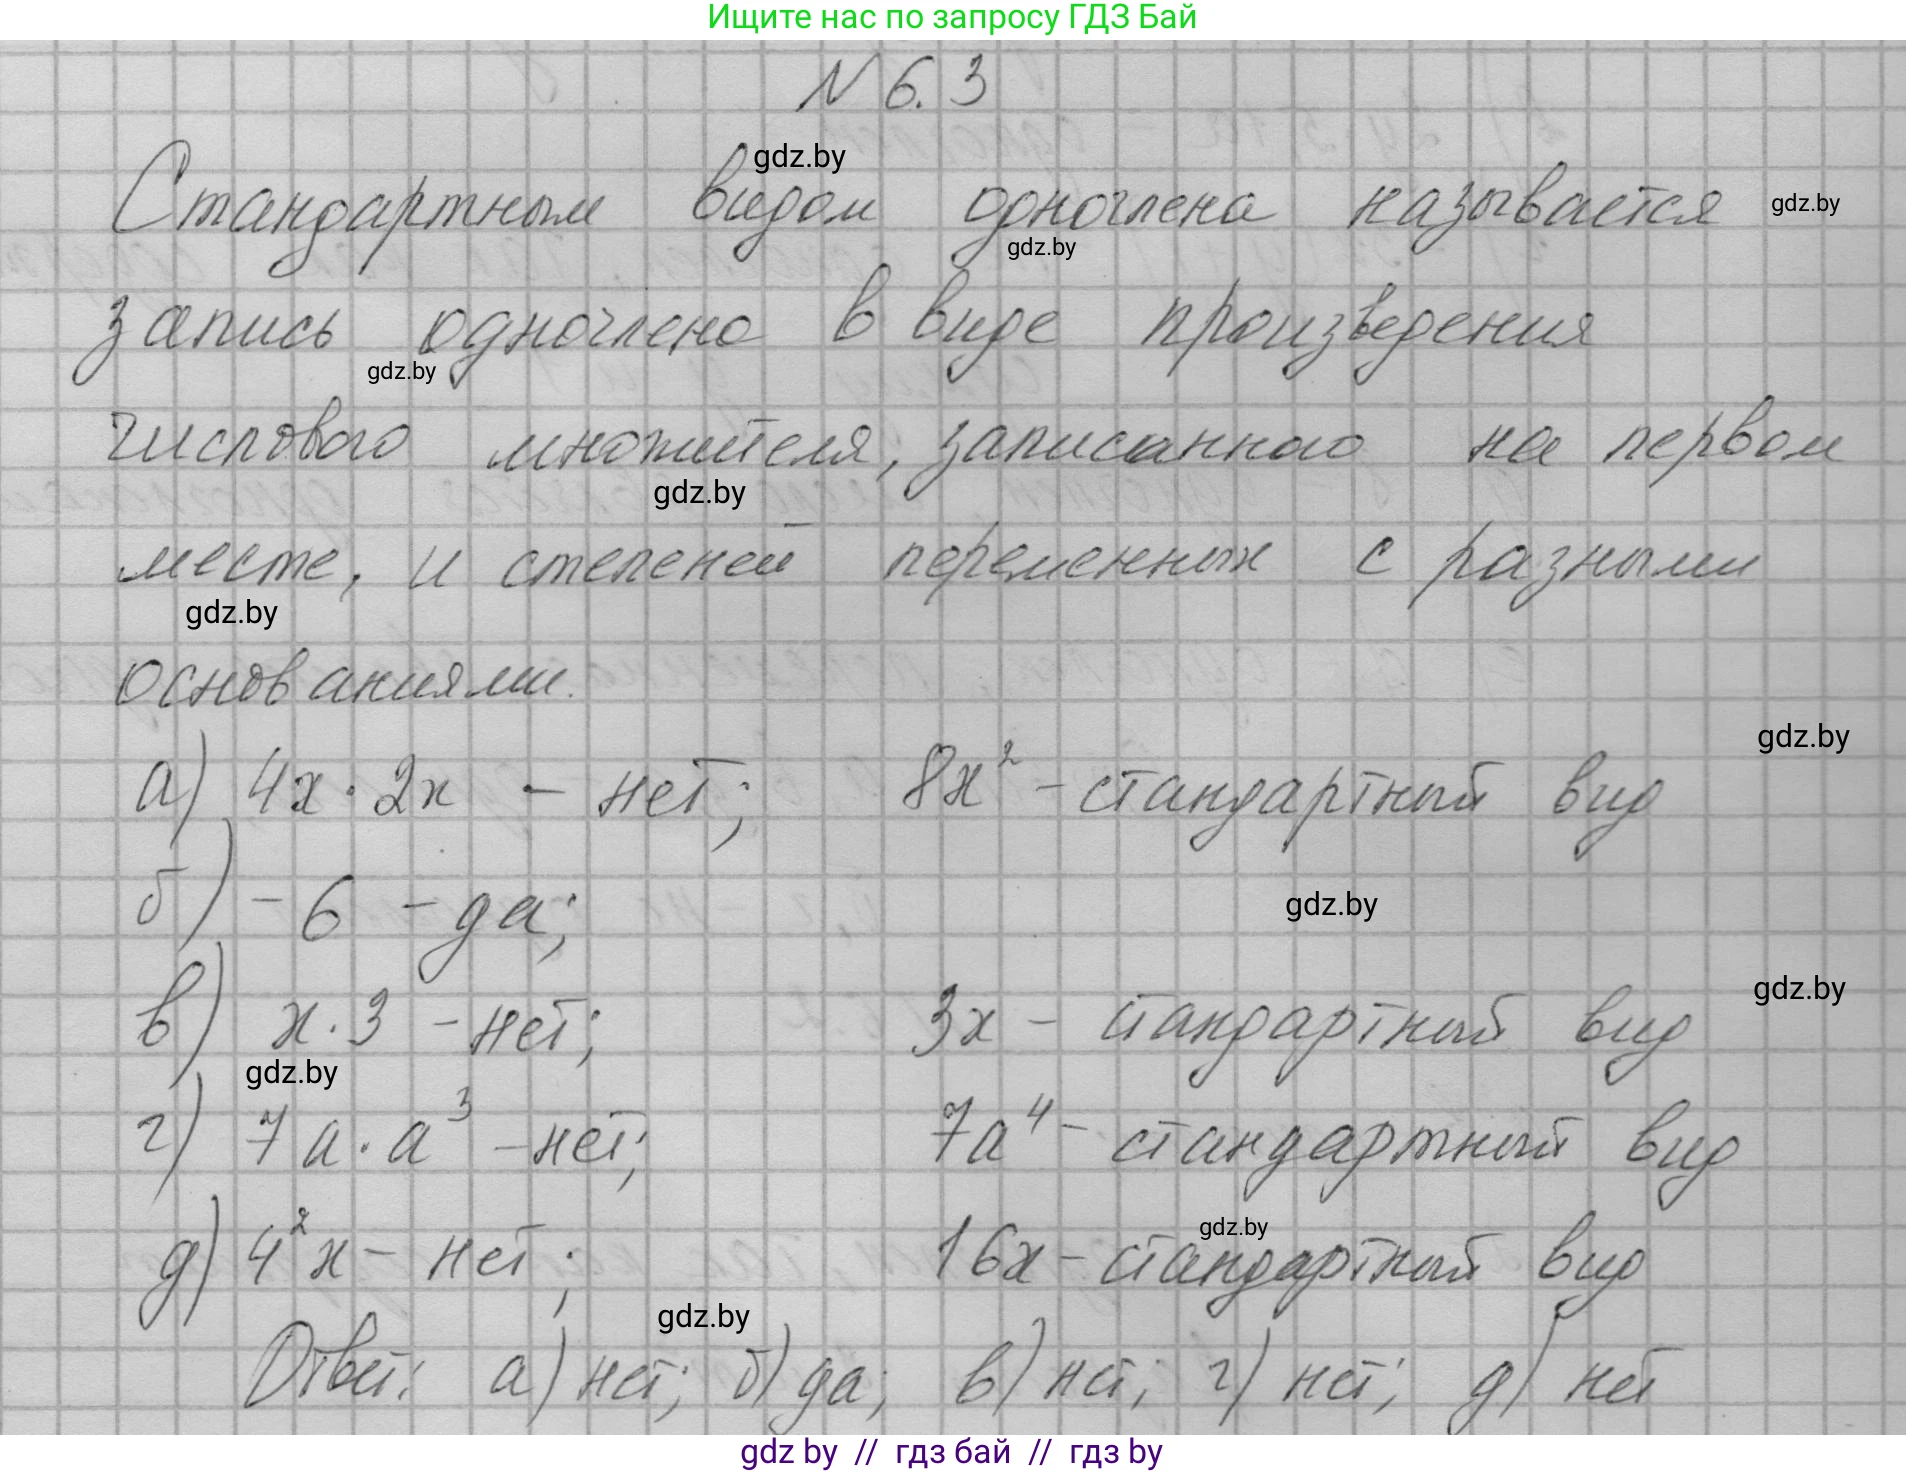 Ищите нас по запросу ГДЗ Бай
N 6.3
gdz.by
Стандартным видом одночлена называется gdz.by
gdz.by
запись одночлена в виде произведения
gdz.by
числового множителя, записанного на первом
gdz.by
месте, и степеней переменных с разными
gdz.by
основаниями.
gdz.by
а) 4x · 2x - нет; 8x² - стандартный вид
б) -6 - да;
gdz.by
в) x · 3 - нет; 3x - стандартный вид
gdz.by
gdz.by
г) 7a · a³ - нет; 7a⁴ - стандартный вид
gdz.by
д) 4²x - нет; 16x - стандартный вид
gdz.by
Ответ: а) нет; б) да; в) нет; г) нет; д) нет
gdz by // гдз бай // гдз by